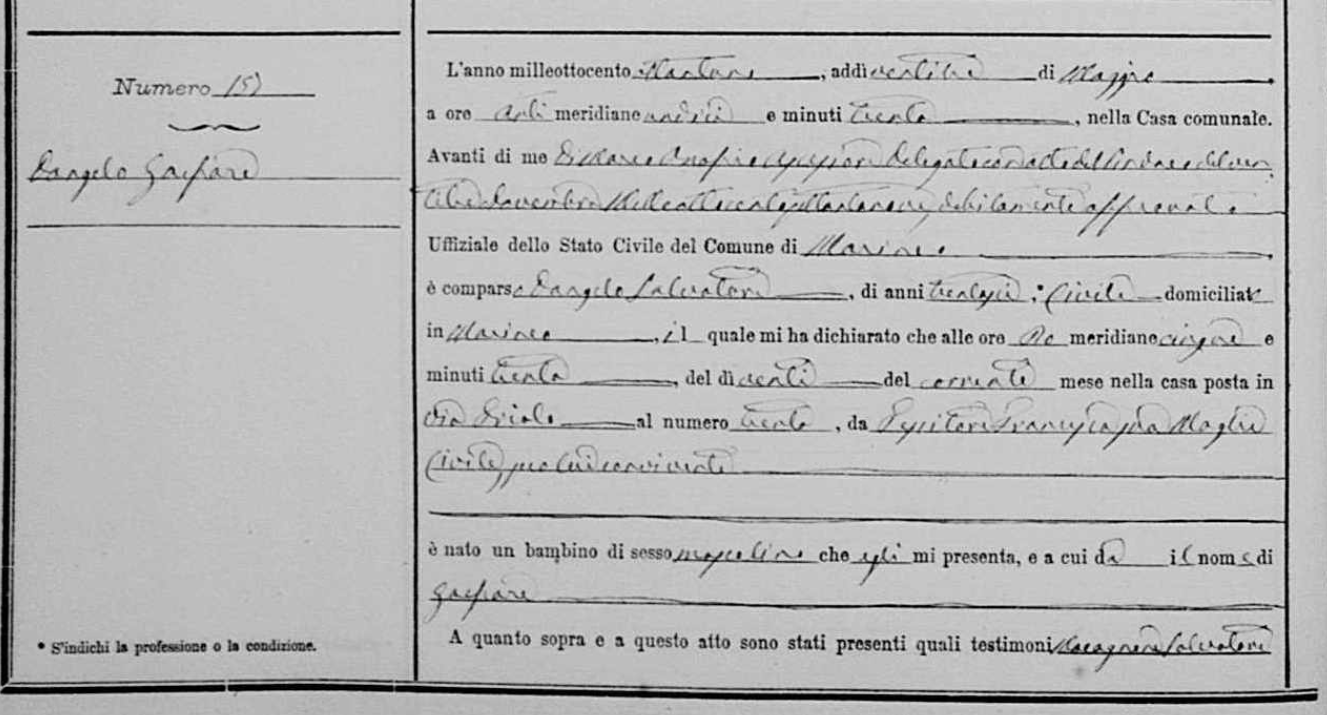 Numero 151
Dangelo Gaspare
* S'indichi la professione o la condizione.
L'anno milleottocento ottantuno, addì ventitre di Maggio
a ore anti meridiane undici e minuti trenta, nella Casa comunale.
Avanti di me Di Marco Onofrio Assessore delegato con atto del Sindaco del ven
titre Novembre Milleottocentosettantanove, debitamente approvato
Uffiziale dello Stato Civile del Comune di Marineo
è comparso Dangelo Salvatore, di anni trentasei, * Civile domiciliato
in Marineo, il quale mi ha dichiarato che alle ore Po meridiane cinque e
minuti trenta, del dì venti del corrente mese nella casa posta in
Via Triolo al numero trenta, da Francesca sua Moglie
Civile, seco lui convivente
è nato un bambino di sesso mascolino che egli mi presenta, e a cui dà il nome di
Gaspare
A quanto sopra e a questo atto sono stati presenti quali testimoni Salvatore